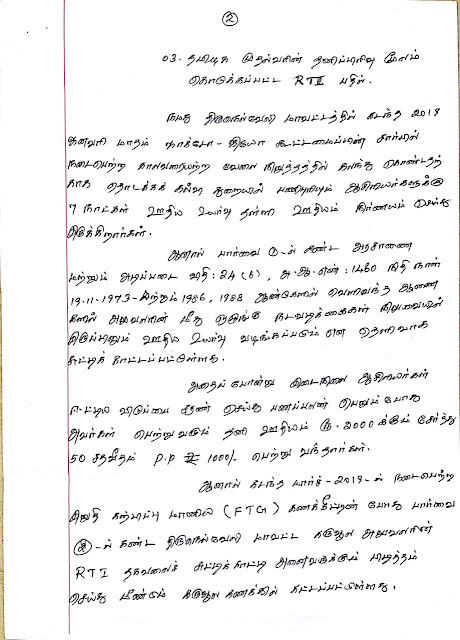 ②
03. தமிழக முதல்வரின் தனிப்பிரிவு மூலம்
கொடுக்கப்பட்ட RTI பதில்.
நமது திருநெல்வேலி மாவட்டத்தில் கடந்த 2019
ஜனவரி மாதம் ஜாக்டோ - ஜியோ கூட்டமைப்பின் சார்பில்
நடைபெற்ற காலவரையற்ற வேலை நிறுத்தத்தில் கலந்து கொண்டதற்
காக தொடக்கக் கல்வி துறையில் பணிபுரியும் ஆசிரியர்களுக்கு
7 நாட்கள் ஊதிய உயர்வு தள்ளி ஊதியம் நிர்ணயம் செய்து
இருக்கிறார்கள்.
ஆனால் பார்வை ①-ல் கண்ட அரசாணை
மற்றும் அடிப்படை விதி : 24 (6), அ.ஆ.எண் : 1460 நிதி நாள்
19.11.1973 - மற்றும் 1986, 1988 ஆண்களில் வெளிவந்த ஆணை
களில் அலுவலரின் மீது ஒழுங்கு நடவடிக்கைகள் நிலுவையில்
இருப்பினும் ஊதிய உயர்வு வழங்கப்படும் என தெளிவாக
சுட்டிக் காட்டப்பட்டுள்ளது.
அதைப் போன்று இடைநிலை ஆசிரியர்கள்
ஈட்டிய விடுப்பை சரண் செய்து பணப்பலன் பெறும் போது
அவர்கள் பெற்று வரும் தனி ஊதியம் ரூ. 2000 க்கும் சேர்த்து
50 சதவீதம் P.P 1000/- பெற்று வந்தார்கள்.
ஆனால் கடந்த மார்ச் - 2019 - ல் நடைபெற்ற
இறுதி கற்பிப்பு மானிய (FTG) கணக்கீட்டின் போது பார்வை
②-ல் கண்ட திருநெல்வேலி மாவட்ட கருவூல அலுவலரின்
RTI தகவலைச் சுட்டிக் காட்டி அனைவருக்கும் பிடித்தம்
செய்து மீண்டும் கருவூல கணக்கில் கட்டப்பட்டுள்ளது.